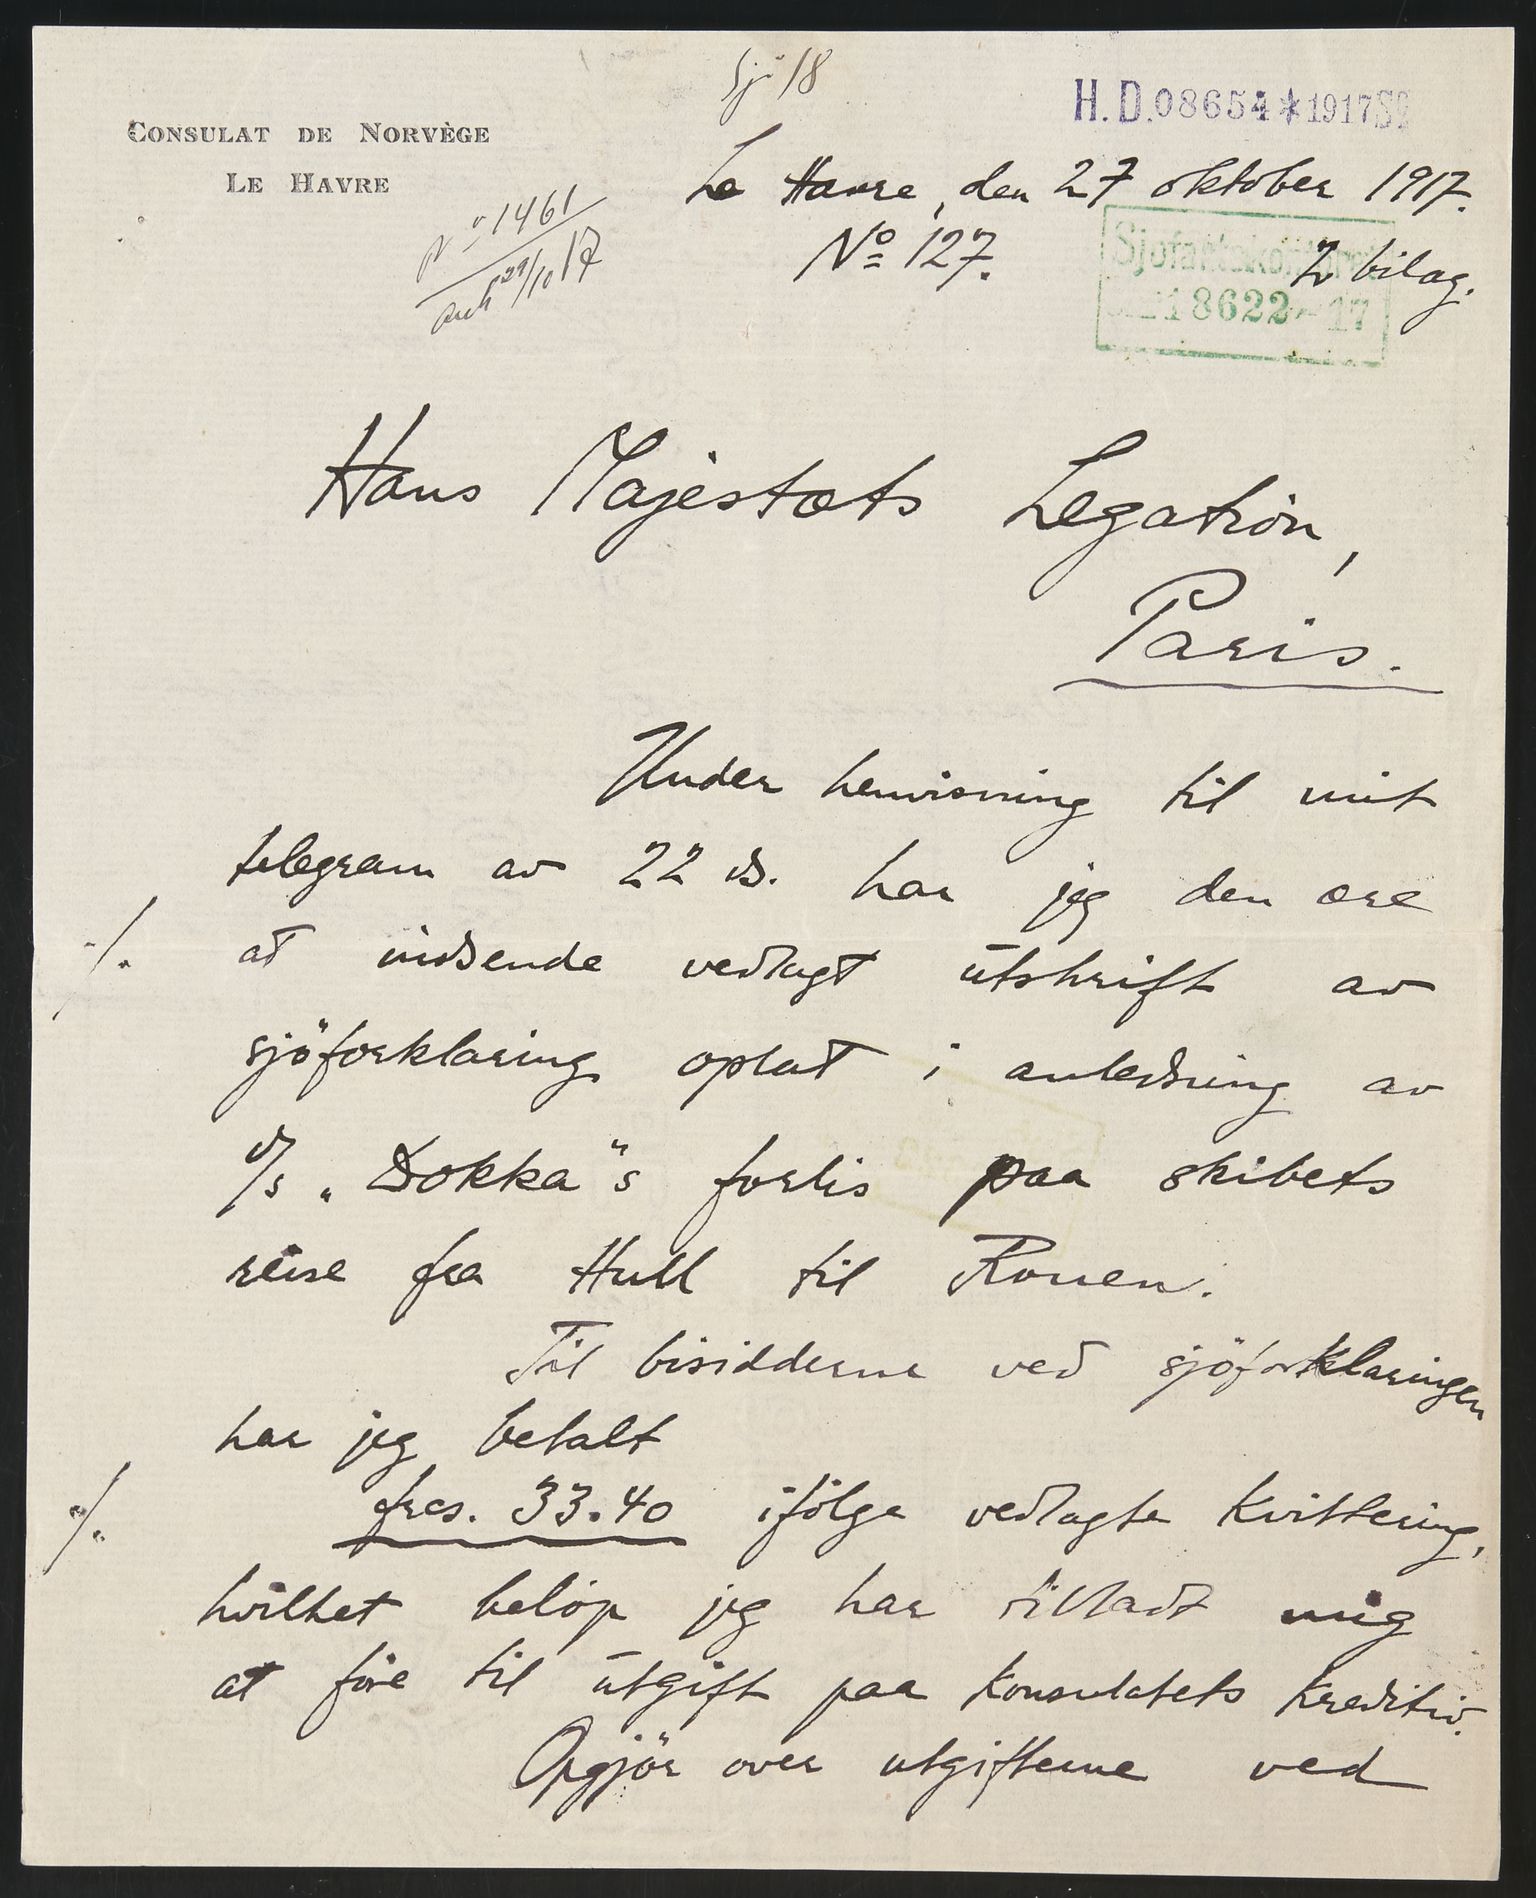 Sjö 18
H. D. 08654 * 1917 Sø
CONSULAT DE NORVÈGE
LE HAVRE
Le Havre, den 27 oktober 1917.
No 1461
29/10 17
No 127.
2 bilag.
Sjøfartskontoret
18622 - 17
Hans Majestæts Legation,
Paris.
Under henvisning til mit
telegram av 22 ds. har jeg den ære
./. at indsende vedlagt utskrift av
sjöforklaring optat i anledning av
d/s "Dokka"s forlis paa skibets
reise fra Hull til Rouen.
Til bisidderne ved sjöforklaringen
har jeg betalt
./. frcs. 33.40 ifölge vedlagte kvittering,
hvilket belöp jeg har tilladt mig
at före til utgift paa konsulatets kreditiv.
Opgjör over utgifterne ved